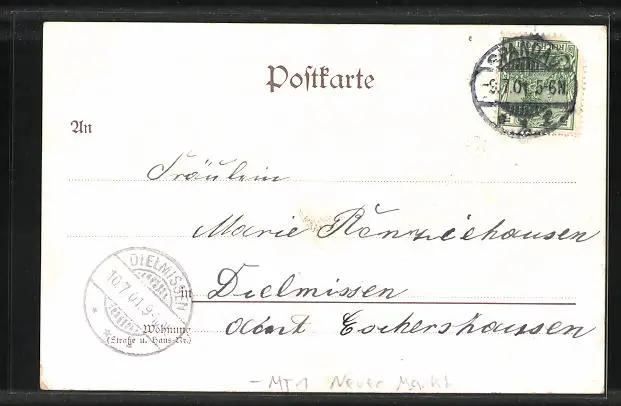 Postkarte
-9.7.01. 5-6N
An
Fräulein
Marie
DIELMISSEN
10.7.01.9-
in Dielmissen
Wohnung
(Straße u. Haus-Nr.)
Amt Eschershausen
Neuer Markt